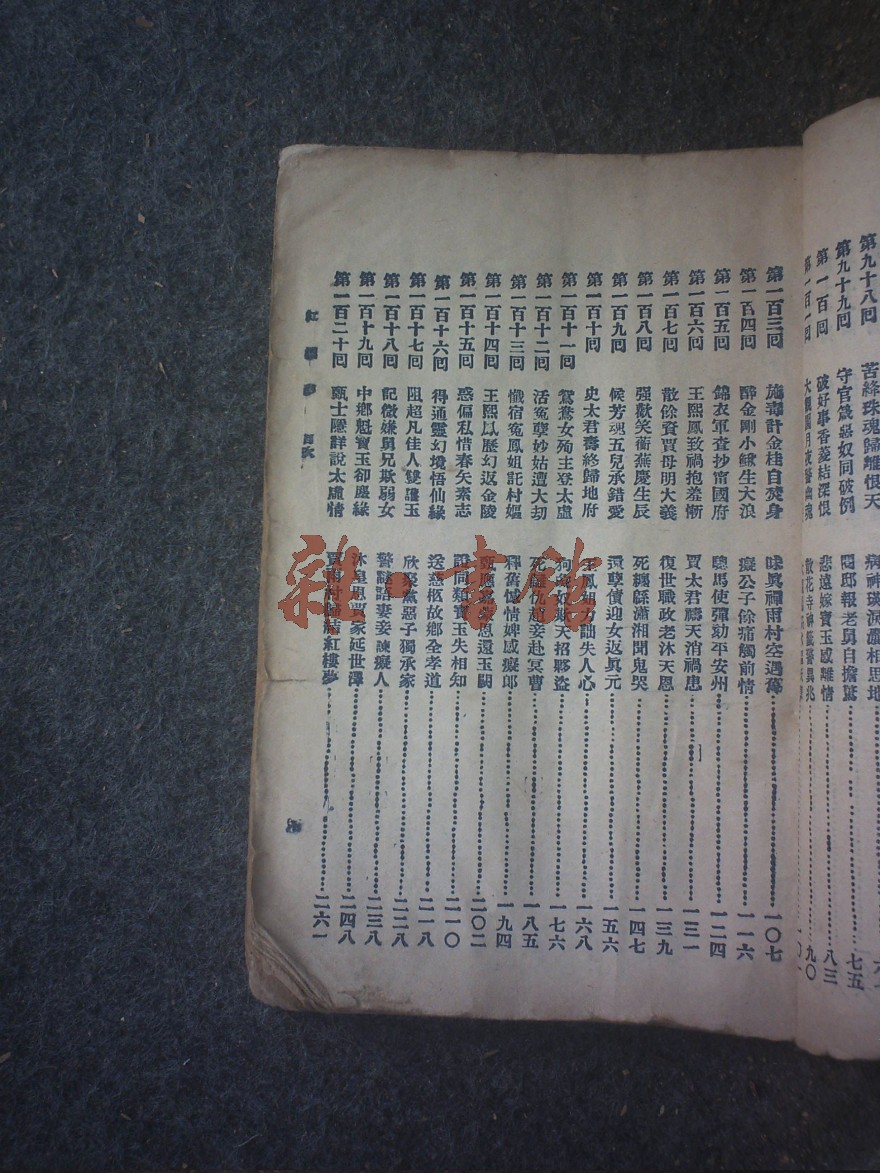 第九十八回 苦絳珠魂歸離恨天 病神瑛淚灑相思地
第九十九回 守官箴惡奴同破例 閱邸報老舅自擔驚 七五
第一百回 破好事香菱結深恨 悲遠嫁寶玉感離情 八三
第一百一回 大觀園月夜警幽魂 散花寺神籤驚異兆 九〇
第一百三回 施毒計金桂自焚身 昧真禪雨村空遇舊 一〇七
第一百四回 醉金剛小鰍生大浪 癡公子餘痛觸前情 一一六
第一百五回 錦衣軍查抄甯國府 驄馬使彈劾平安州 一二四
第一百六回 王熙鳳致禍抱羞慚 賈太君禱天消禍患 一三一
第一百七回 散餘資賈母明大義 復世職政老沐天恩 一三九
第一百八回 强歡笑蘅蕪慶生辰 死纏緜瀟湘聞鬼哭 一四七
第一百九回 候芳魂五兒承錯愛 還孽債迎女返眞元 一五六
第一百十回 史太君壽終歸地府 王鳳姐力詘失人心 一六八
第一百十一回 鴛鴦女殉主登太虛 狗彘奴欺天招夥盜 一七六
第一百十二回 活冤孽妙姑遭大刧 死讎仇趙妾赴冥曹 一八五
第一百十三回 懺宿冤鳳姐託村嫗 釋舊憾情婢感癡郎 一九四
第一百十四回 王熙鳳歷幻返金陵 甄應嘉蒙恩還玉闕 二〇二
第一百十五回 惑偏私惜春矢素志 證同類寶玉失相知 二一〇
第一百十六回 得通靈幻境悟仙緣 送慈柩故鄉全孝道 二一八
第一百十七回 阻超凡佳人雙護玉 欣聚黨惡子獨承家 二二八
第一百十八回 記微嫌舅兄欺弱女 警謎語妻妾諫癡人 二三八
第一百十九回 中鄉魁寶玉卻塵緣 沐皇恩賈家延世澤 二四八
第一百二十回 甄士隱詳說太虛情 賈雨村歸結紅樓夢 二六一
紅樓夢 目次
雜·書館